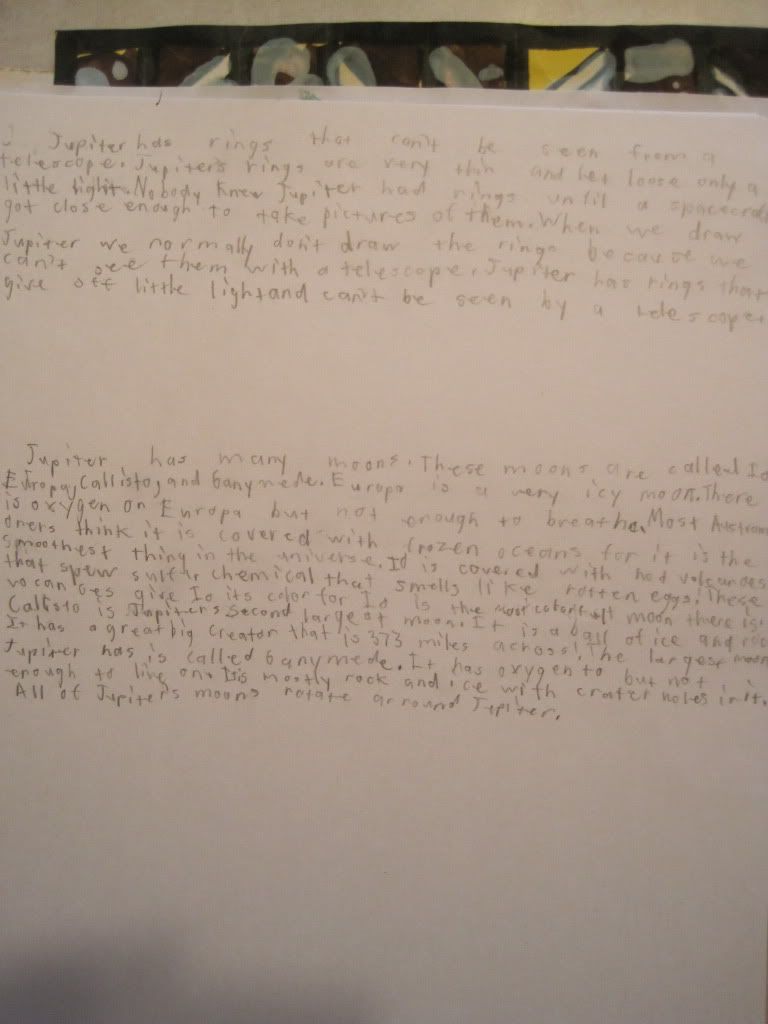 Jupiter has rings that can't be seen from a
telescope. Jupiter's rings are very thin and let loose only a
little light. Nobody knew Jupiter had rings until a spacecraft
got close enough to take pictures of them. When we draw
Jupiter we normally don't draw the rings because we
can't see them with a telescope. Jupiter has rings that
give off little light and can't be seen by a telescope.
Jupiter has many moons. These moons are called Io
Europa, Callisto, and Ganymede. Europa is a very icy moon. There
is oxygen on Europa but not enough to breathe. Most Austrom
omers think it is covered with frozen oceans for it is the
smoothest thing in the universe. Io is covered with hot volcanoes
that spew sulfur chemical that smells like rotten eggs. These
vocanoes give Io its color for Io is the most colorfull moon there is.
Callisto is Jupiter's second largest moon. It is a ball of ice and roc
It has a great big creator that is 373 miles across! The largest moon
Jupiter has is called Ganymede. It has oxygen to but not
enough to live on. It is mostly rock and ice with crater holes in it.
All of Jupiter's moons rotate arround Jupiter.